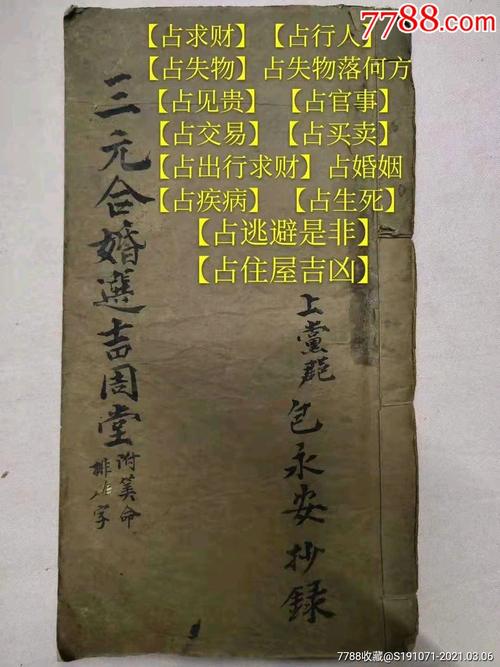 7788.com
【占求财】【占行人】
【占失物】占失物落何方
【占见贵】【占官事】
【占交易】【占买卖】
【占出行求财】占婚姻
【占疾病】【占生死】
【占逃避是非】
【占住屋吉凶】
三元合婚選吉周堂
附筭命
排八字
上黨郡
包永安抄録
7788收藏@S191071-2021.03.06